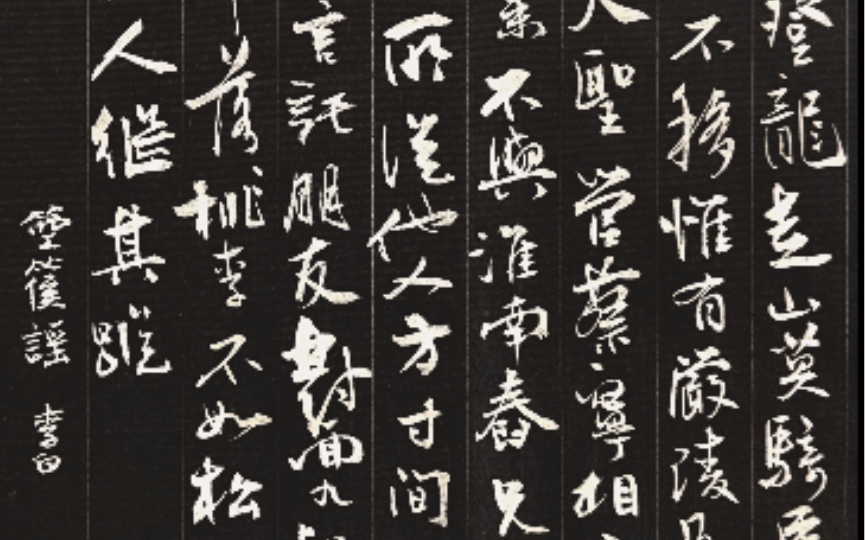 登龍走山莫騎
不移惟有嚴陵
大聖管蔡寧相
粟不與淮南舂兄
所從他人方寸間
言託朋友對面九
落桃李不如松
人繼其蹤
箜篌謠 李白